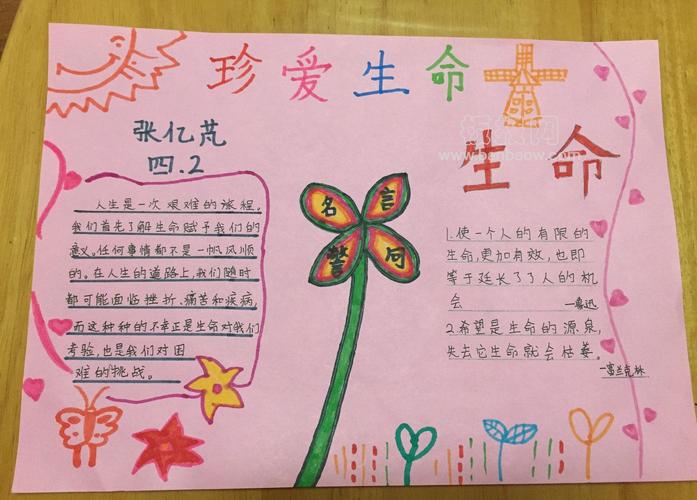 珍爱生命
张亿芃
四.2
人生是一次艰难的旅程。
我们首先了解生命赋予我们的
意义。任何事情都不是一帆风顺
的。在人生的道路上,我们随时
都可能面临挫折、痛苦和疾病,
而这种种的不幸正是生命对我们
考验,也是我们对困
难的挑战。
名言
警句
生命
1.使一个人的有限的
生命,更加有效,也即
等于延长了了人的机
会
—鲁迅
2.希望是生命的源泉,
失去它生命就会枯萎。
—富兰克林
www.banbaow.com